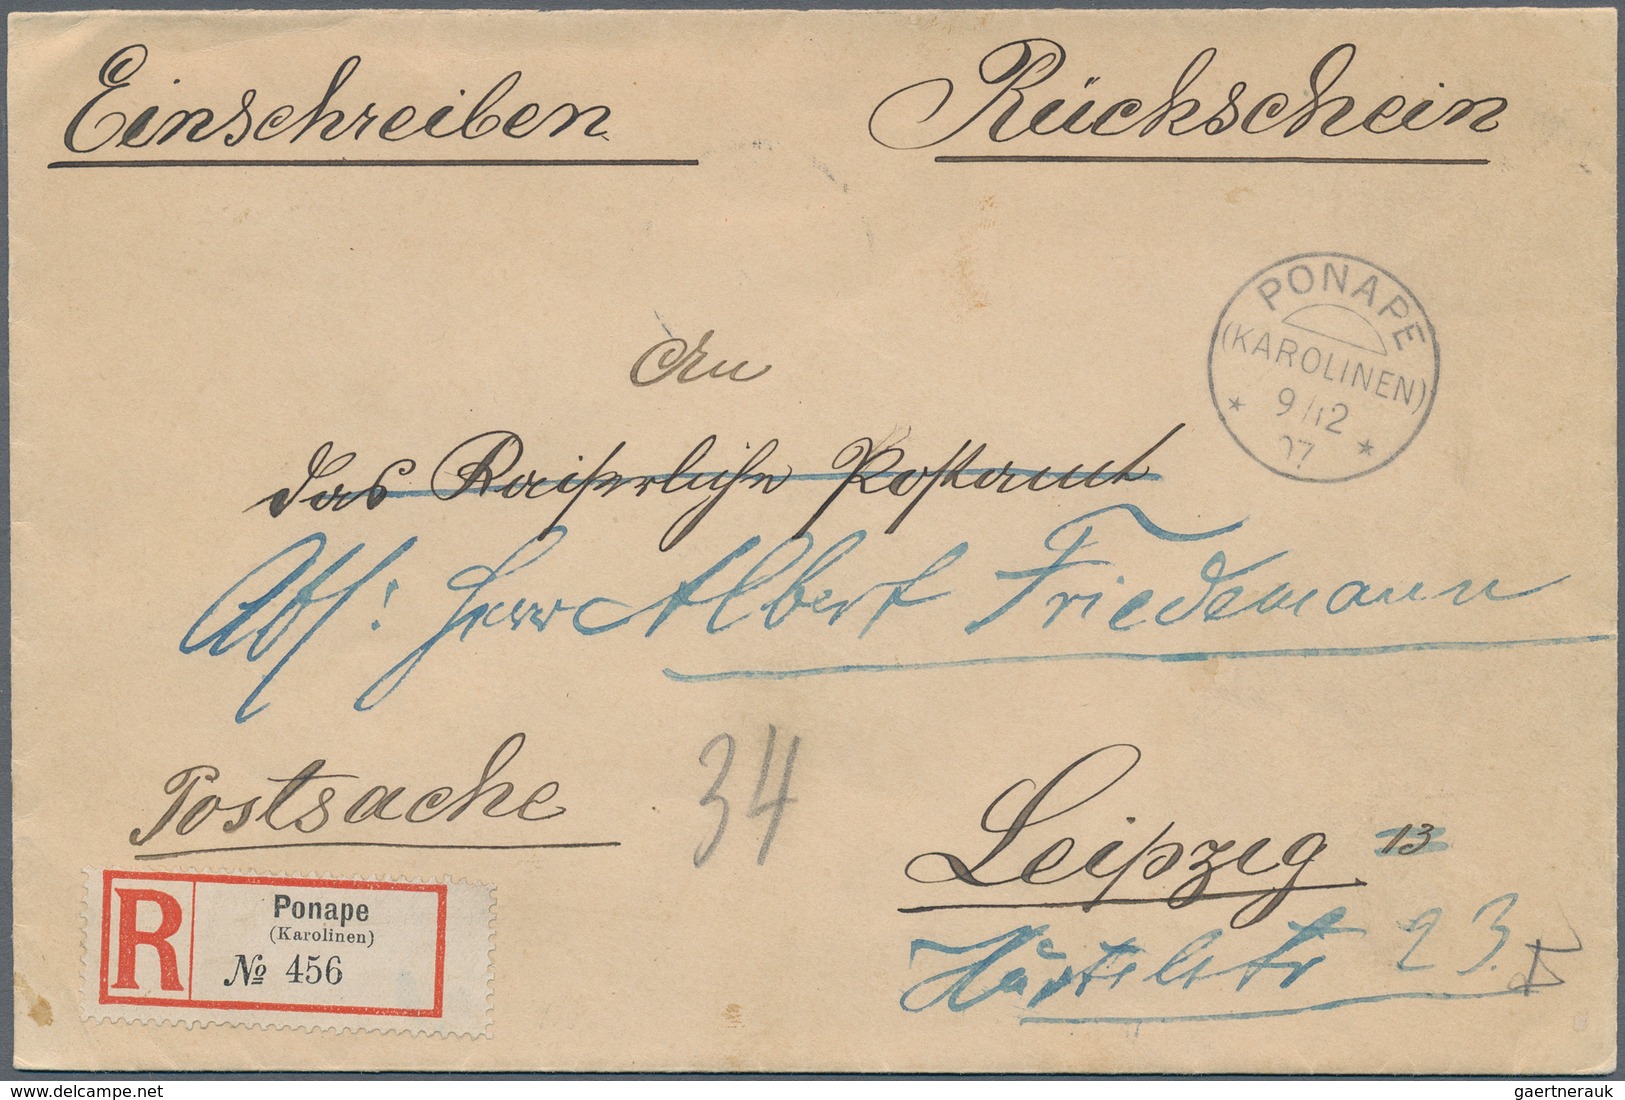 Einschreiben
Rückschein
PONAPE
(KAROLINEN)
9/12
07
An
das Kaiserliche Postamt
Abs: Herr Albert Friedemann
Postsache
34
Leipzig 13
23.
R
Ponape
(Karolinen)
№ 456
www.delcampe.net
gaertnerauk